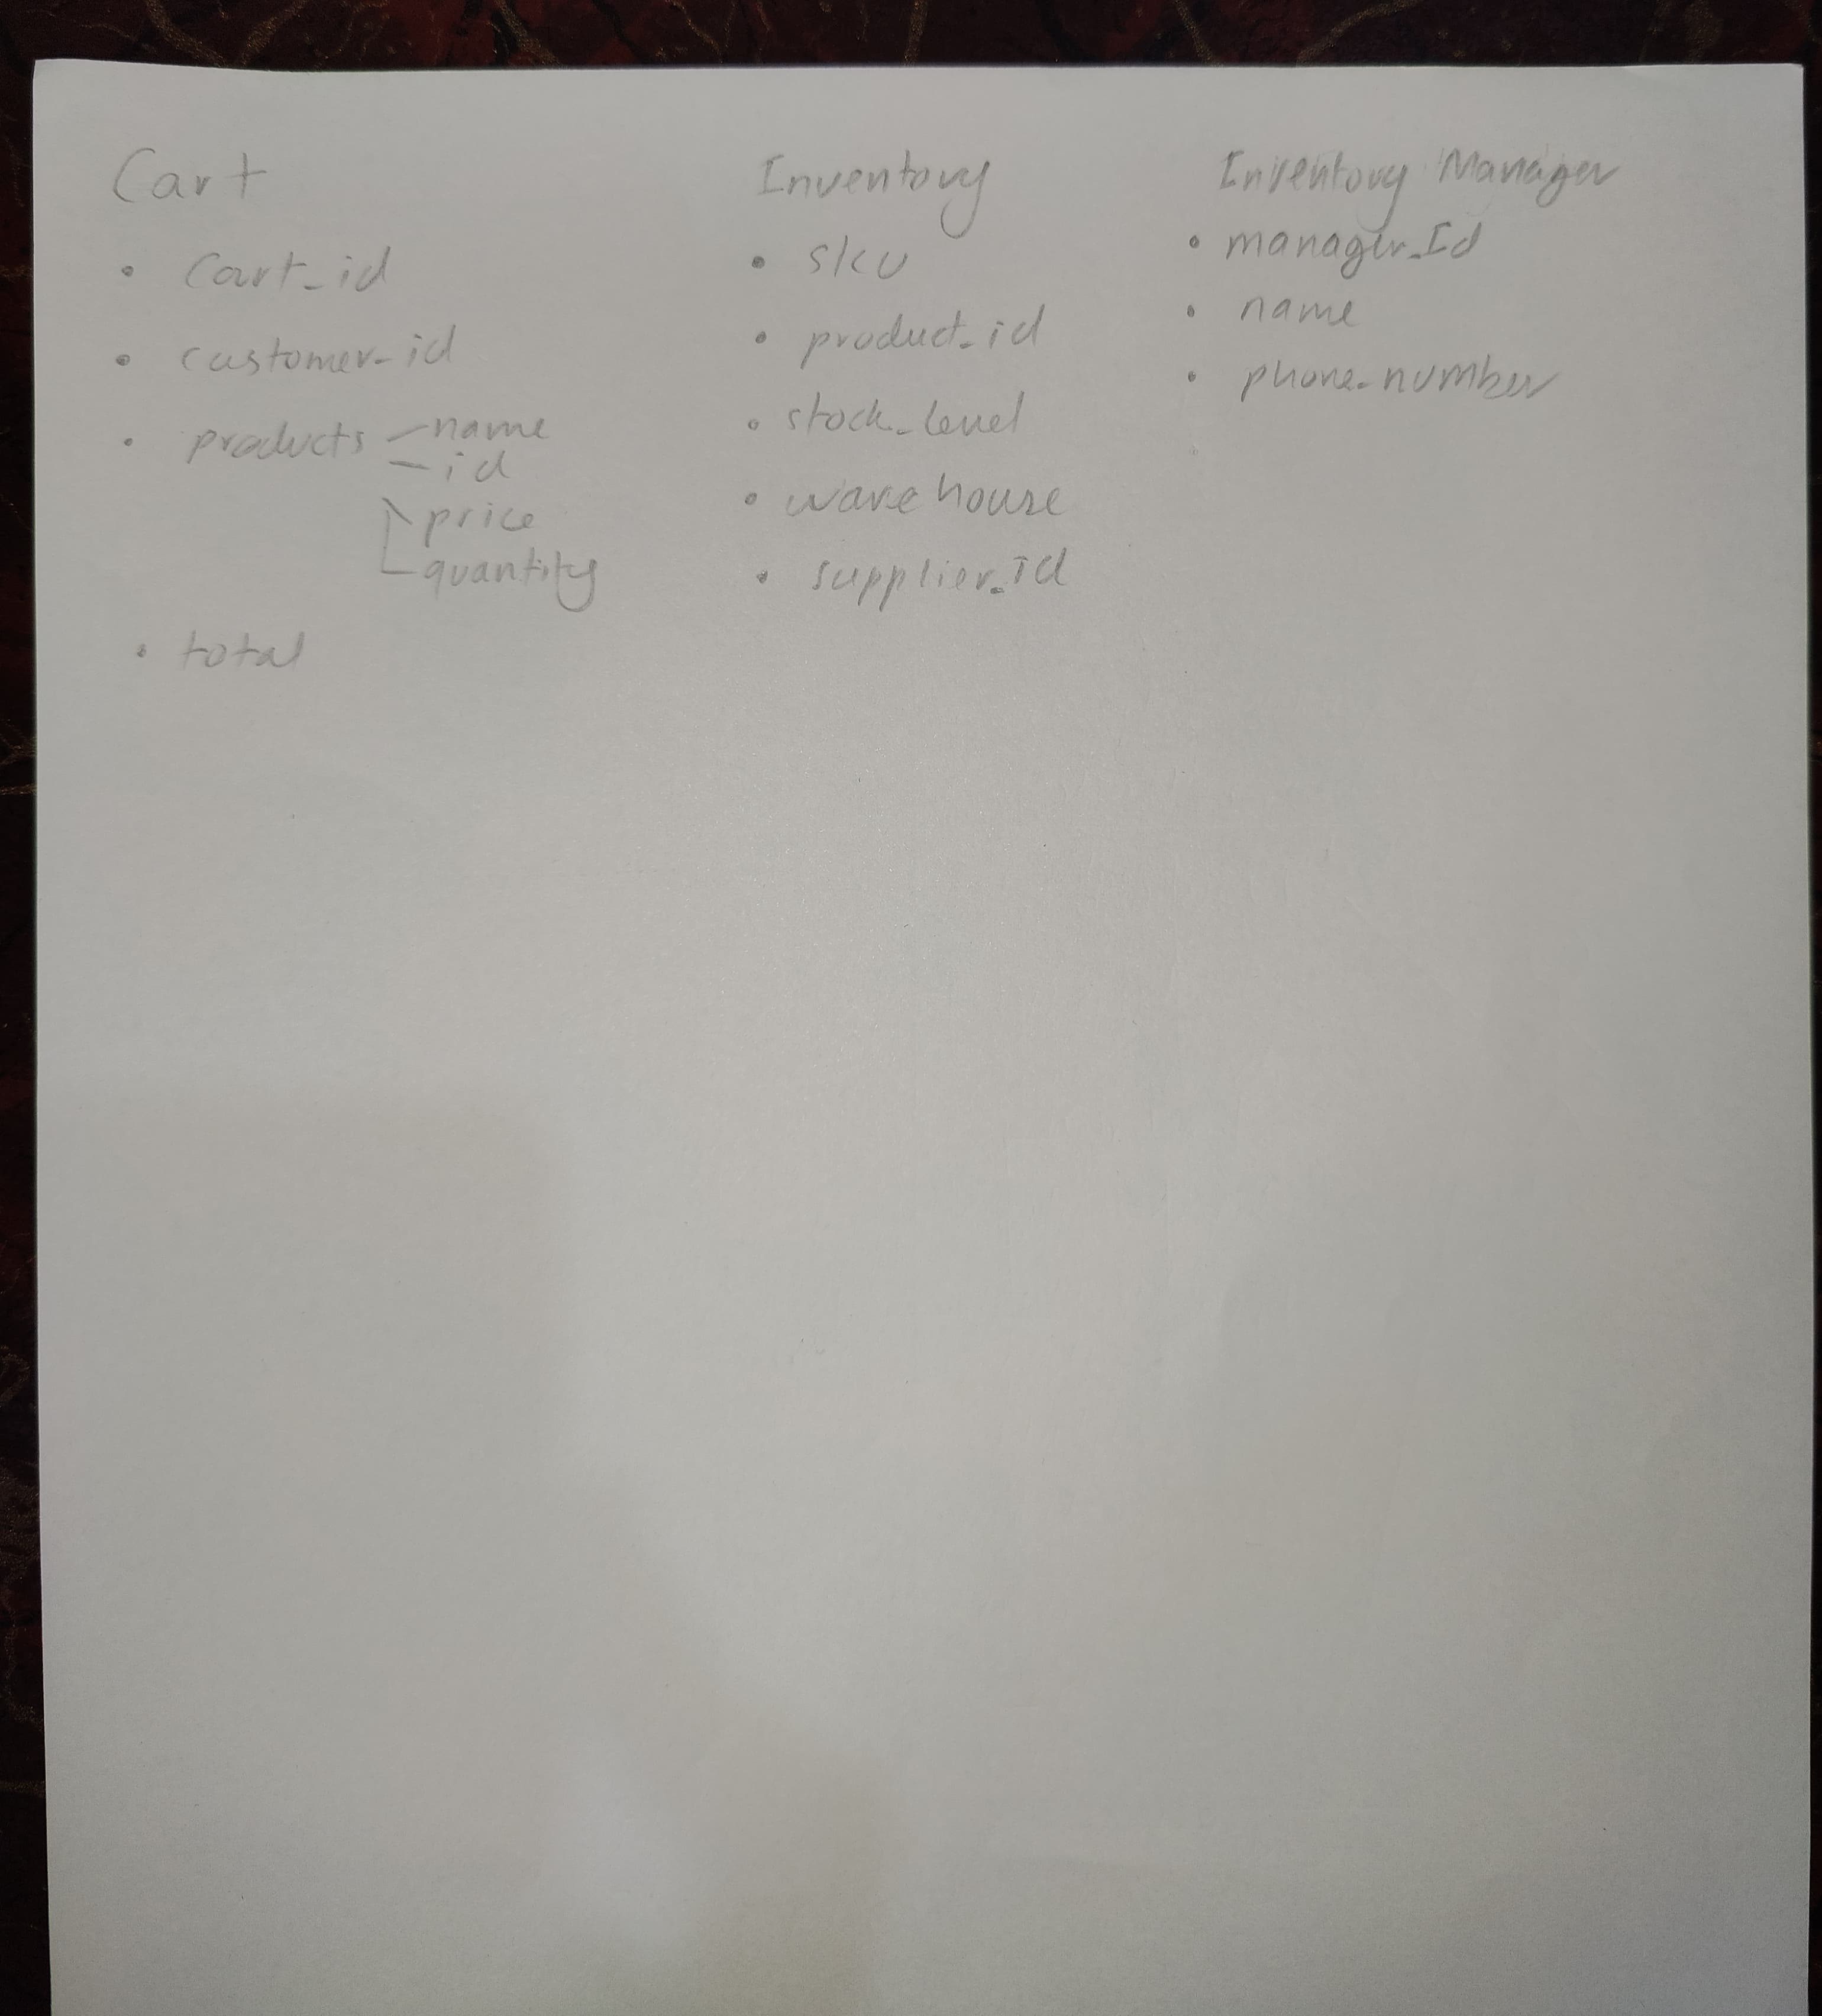 Cart
• Cart_id
• customer_id
• products - name
- id
price
quantity
• total
Inventory
• sku
• product_id
• stock_level
• warehouse
• supplier_id
Inventory Manager
• manager_Id
• name
• phone_number